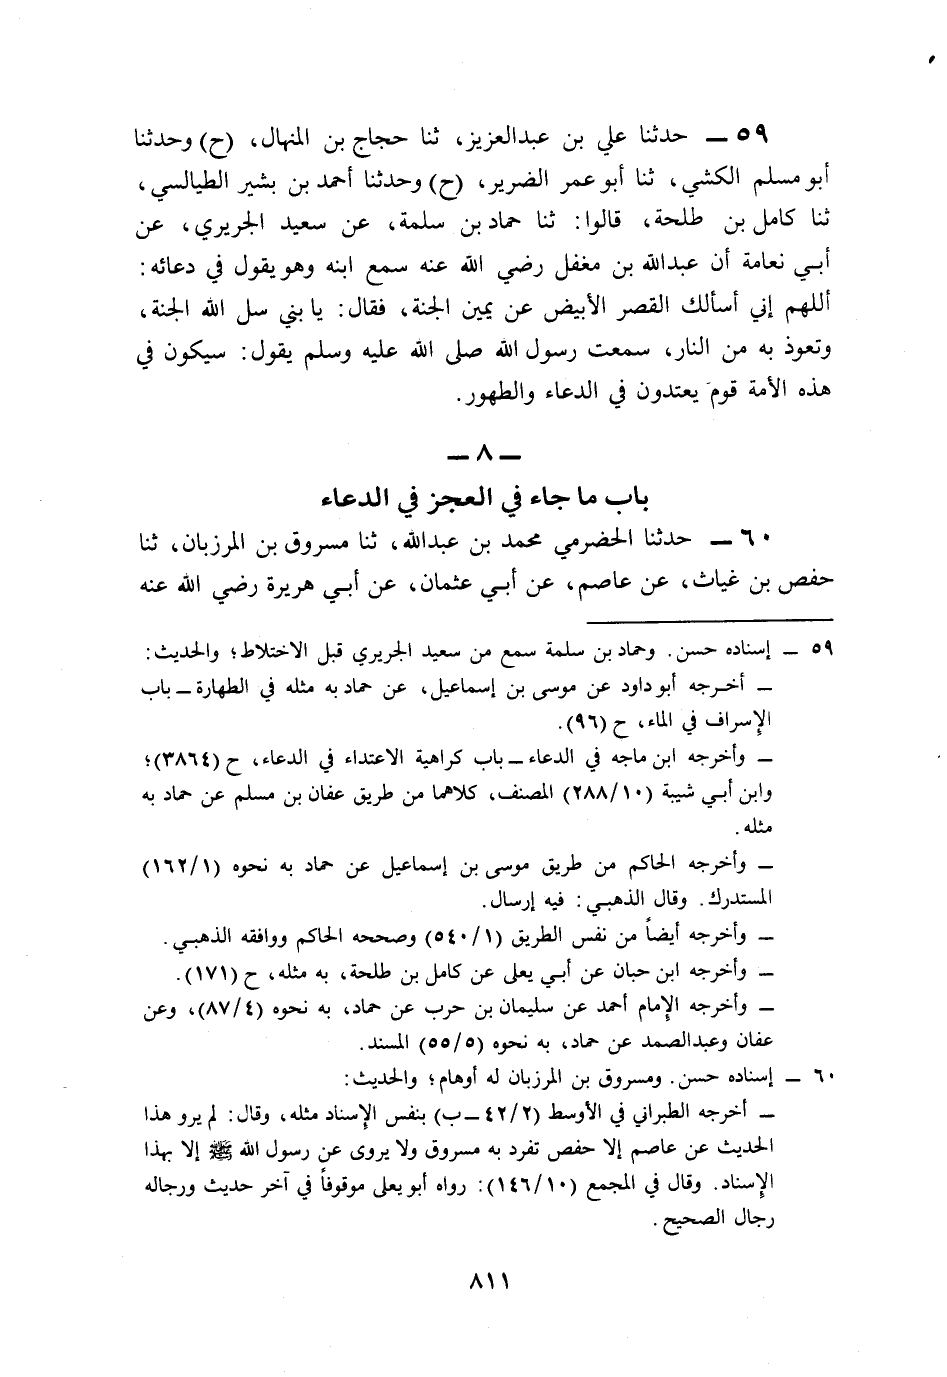 ٥٩ ــ حدثنا علي بن عبدالعزيز، ثنا حجاج بن المنهال، (ح) وحدثنا
أبو مسلم الكشي، ثنا أبو عمر الضرير، (ح) وحدثنا أحمد بن بشير الطيالسي،
ثنا كامل بن طلحة، قالوا: ثنا حماد بن سلمة، عن سعيد الجريري، عن
أبي نعامة أن عبدالله بن مغفل رضي الله عنه سمع ابنه وهو يقول في دعائه:
أللهم إني أسألك القصر الأبيض عن يمين الجنة، فقال: يا بني سل الله الجنة،
وتعوذ به من النار، سمعت رسول الله صلى الله عليه وسلم يقول: سيكون في
هذه الأمة قومَ يعتدون في الدعاء والطهور.
ــ ٨ ــ
باب ما جاء في العجز في الدعاء
٦٠ ــ حدثنا الحضرمي محمد بن عبدالله، ثنا مسروق بن المرزبان، ثنا
حفص بن غياث، عن عاصم، عن أبي عثمان، عن أبي هريرة رضي الله عنه
٥٩ ــ إسناده حسن. وحماد بن سلمة سمع من سعيد الجريري قبل الاختلاط؛ والحديث:
ــ أخرجه أبو داود عن موسى بن إسماعيل، عن حماد به مثله في الطهارة ــ باب
الإسراف في الماء، ح (٩٦).
ــ وأخرجه ابن ماجه في الدعاء ــ باب كراهية الاعتداء في الدعاء، ح (٣٨٦٤)؛
وابن أبي شيبة (٢٨٨/١٠) المصنف، كلاهما من طريق عفان بن مسلم عن حماد به
مثله.
ــ وأخرجه الحاكم من طريق موسى بن إسماعيل عن حماد به نحوه (١٦٢/١)
المستدرك. وقال الذهبي: فيه إرسال.
ــ وأخرجه أيضاً من نفس الطريق (٥٤٠/١) وصححه الحاكم ووافقه الذهبي.
ــ وأخرجه ابن حبان عن أبي يعلى عن كامل بن طلحة، به مثله، ح (١٧١).
ــ وأخرجه الإمام أحمد عن سليمان بن حرب عن حماد، به نحوه (٨٧/٤)، وعن
عفان وعبدالصمد عن حماد، به نحوه (٥٥/٥) المسند.
٦٠ ــ إسناده حسن. ومسروق بن المرزبان له أوهام؛ والحديث:
ــ أخرجه الطبراني في الأوسط (٤٢/٢ ــ ب) بنفس الإسناد مثله، وقال: لم يرو هذا
الحديث عن عاصم إلا حفص تفرد به مسروق ولا يروى عن رسول الله ﷺ إلا بهذا
الإسناد. وقال في المجمع (١٤٦/١٠): رواه أبو يعلى موقوفاً في آخر حديث ورجاله
رجال الصحيح.
٨١١